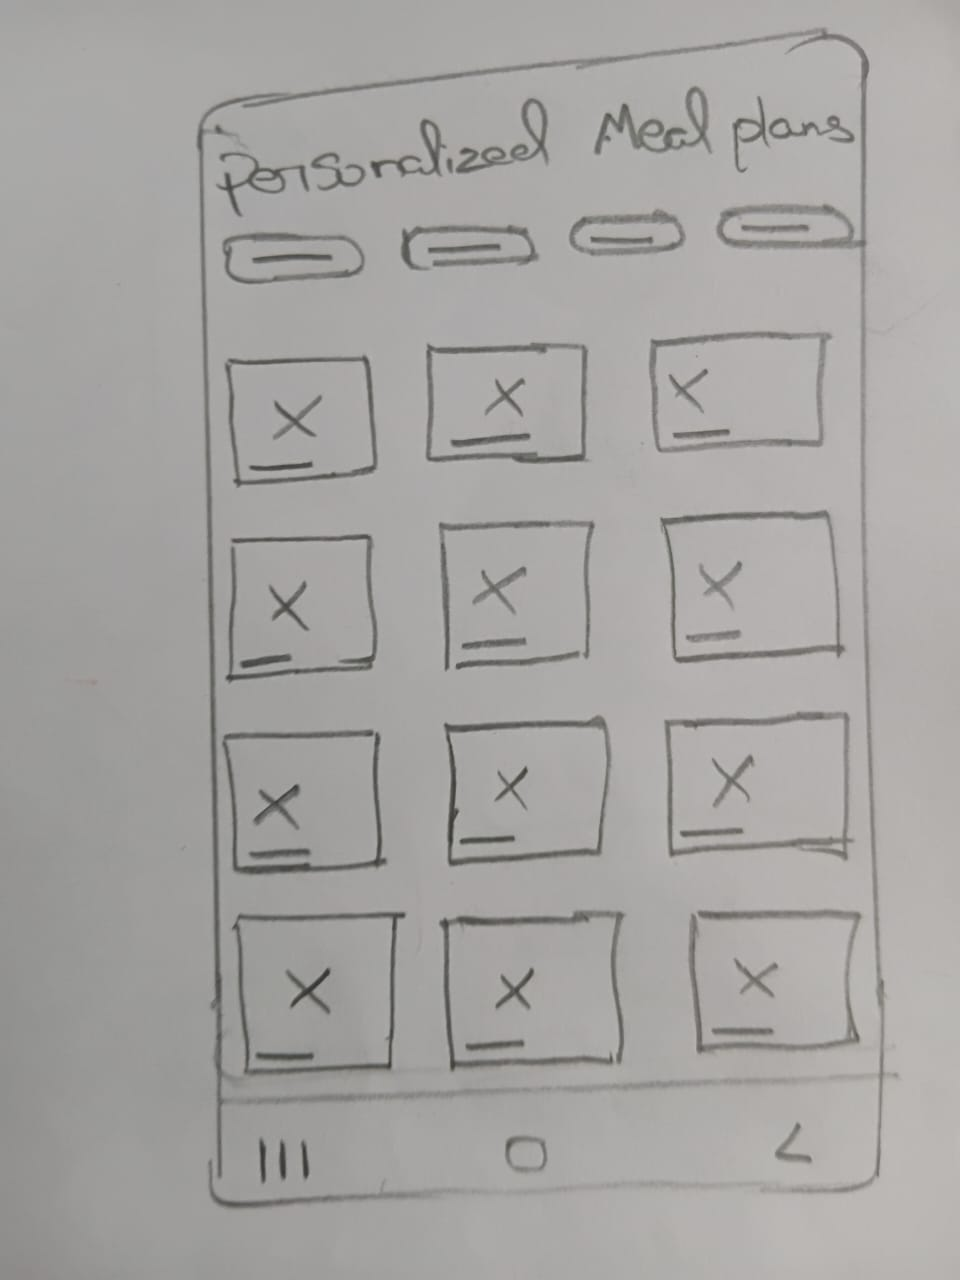 Personalized Meal plans